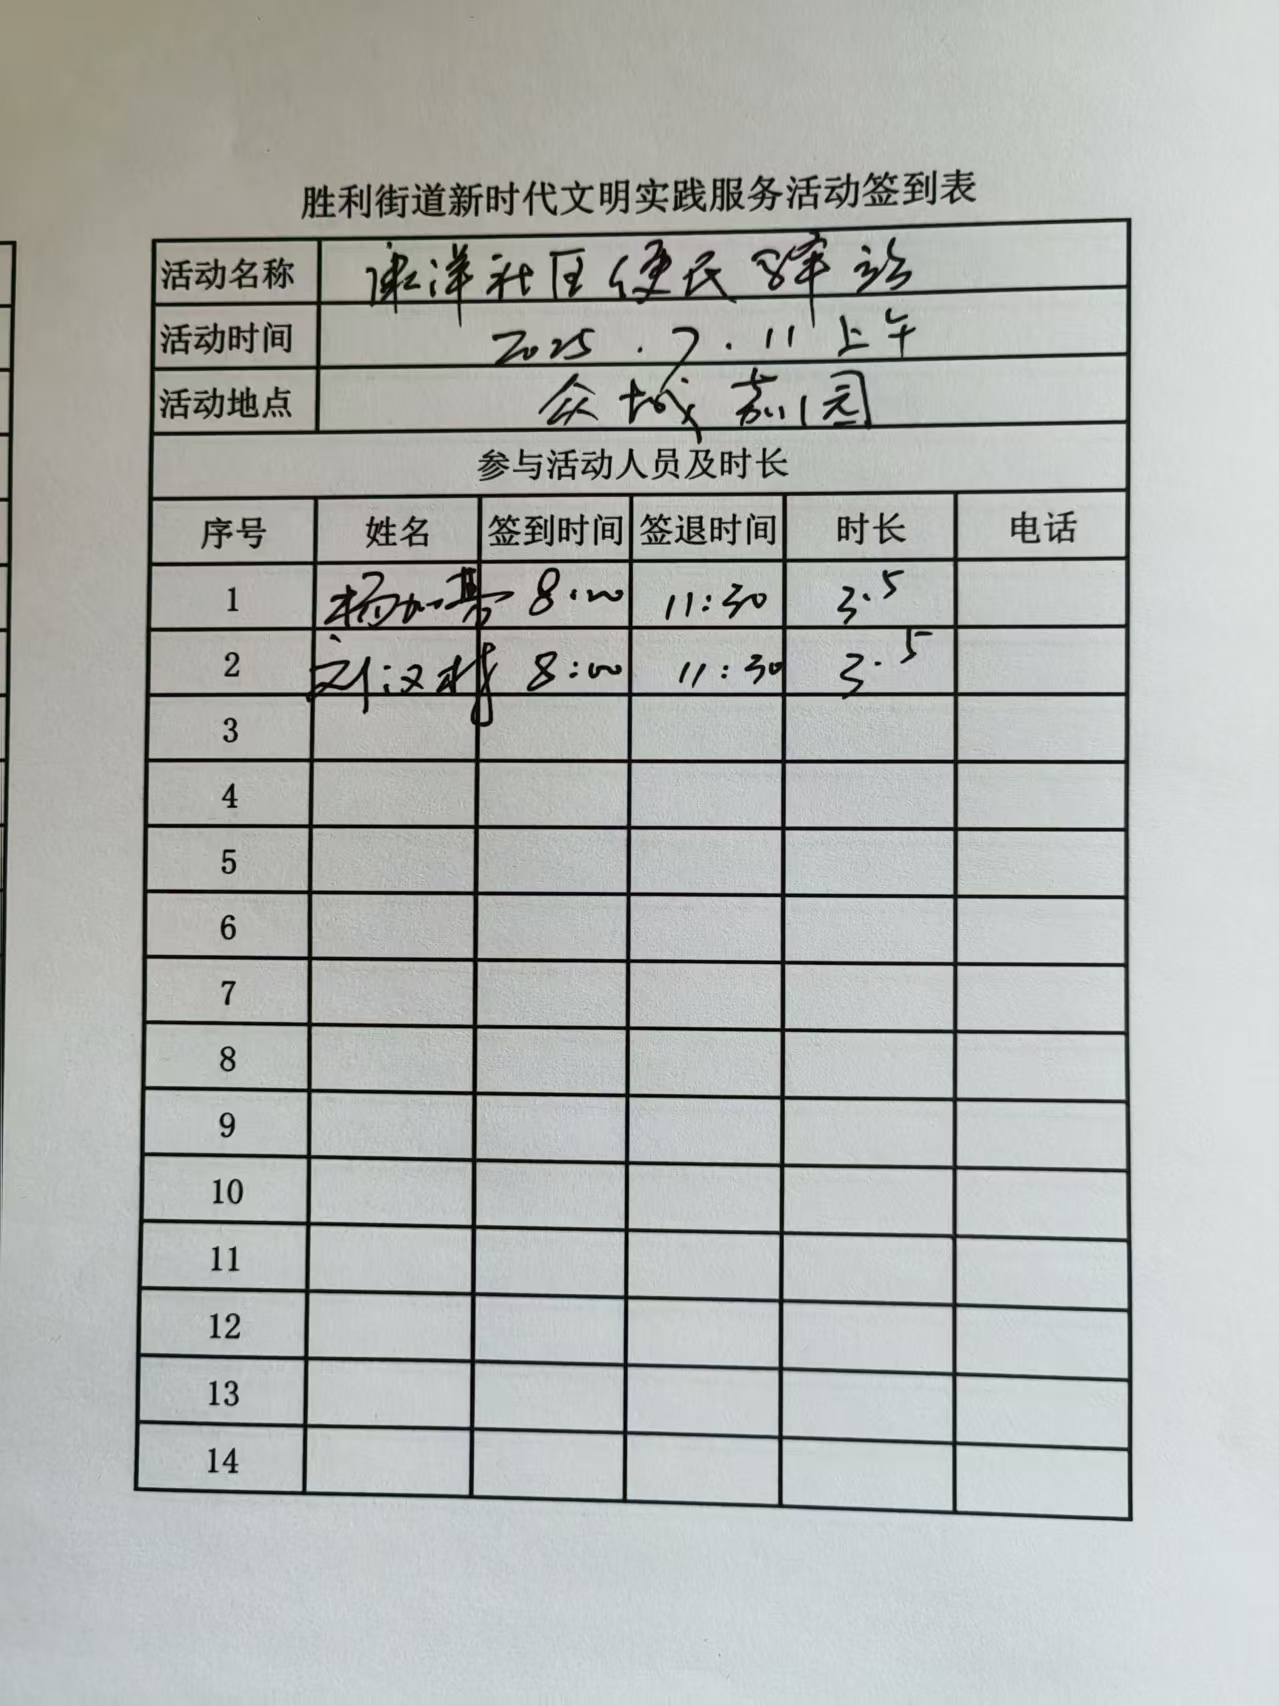 胜利街道新时代文明实践服务活动签到表
活动名称 洋社区便民驿站
活动时间 2025.7.11上午
活动地点 众城嘉园
参与活动人员及时长
序号 姓名 签到时间 签退时间 时长 电话
1 杨 8:00 11:30 3.5
2 刘汉 8:00 11:30 3.5
3
4
5
6
7
8
9
10
11
12
13
14